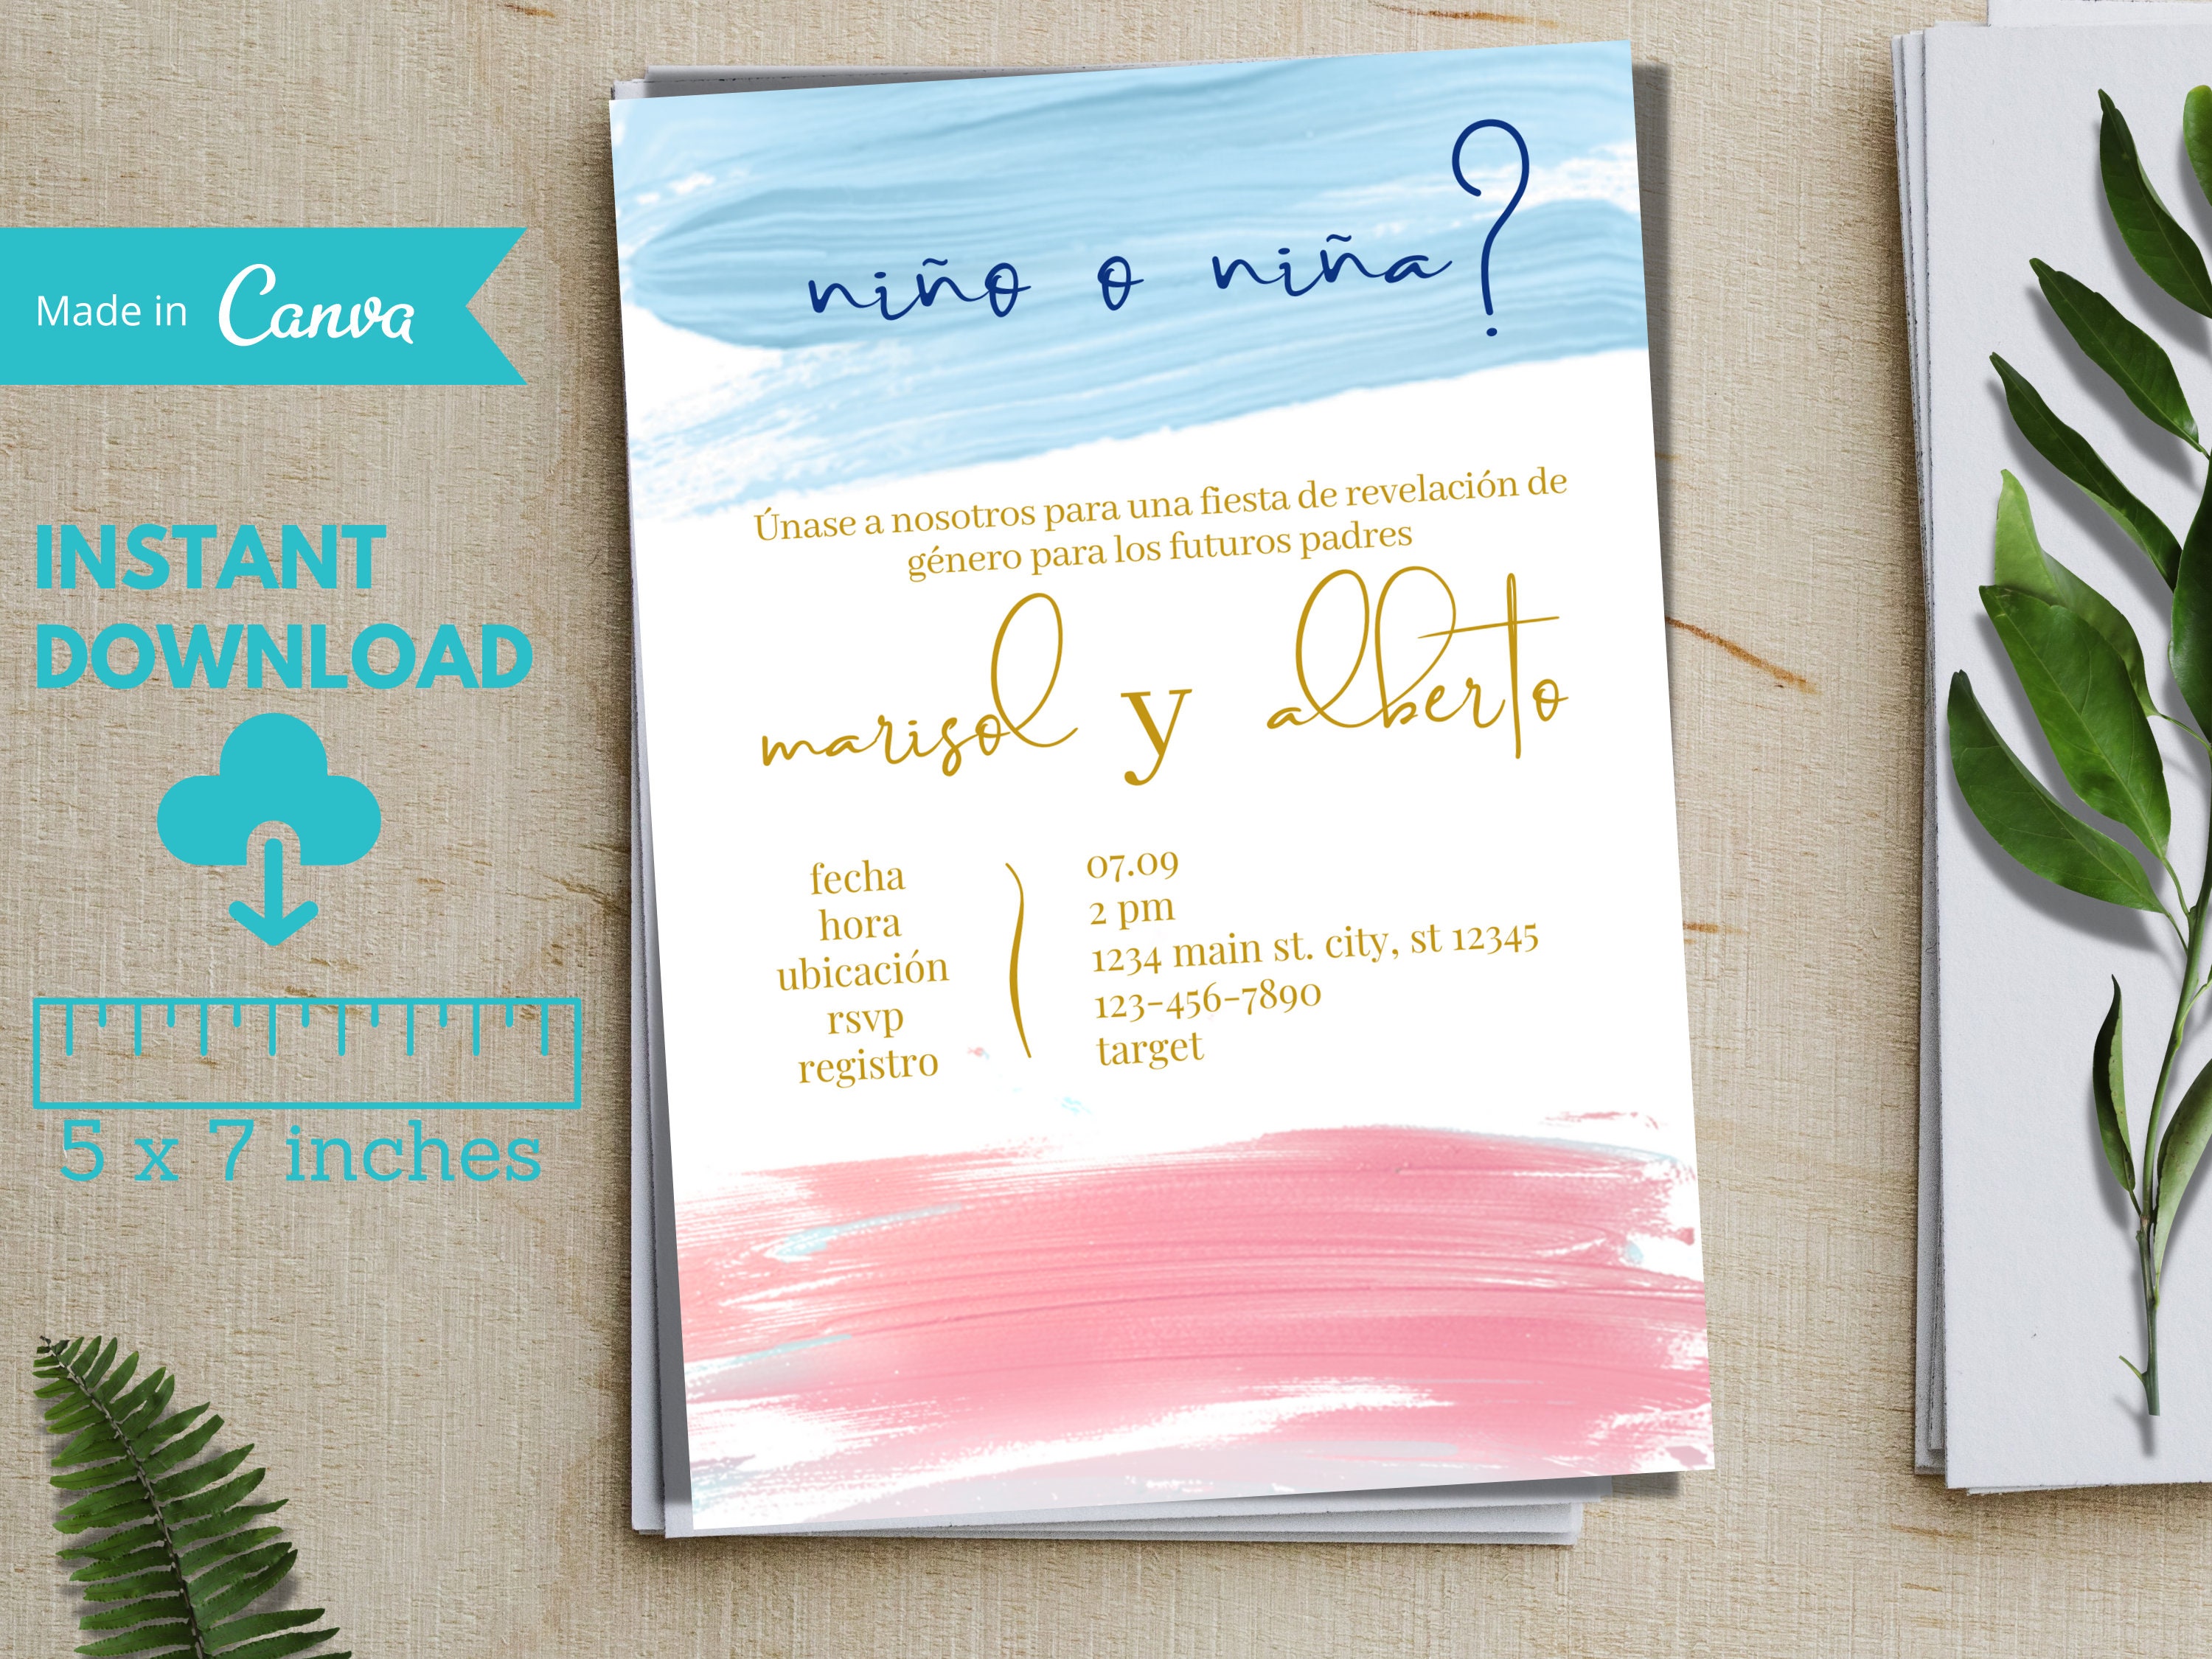 Made in Canva
INSTANT
DOWNLOAD
5 x 7 inches
niño o niña?
Únase a nosotros para una fiesta de revelación de
género para los futuros padres
marisol y alberto
fecha 07.09
hora 2 pm
ubicación 1234 main st. city, st 12345
rsvp 123-456-7890
registro target